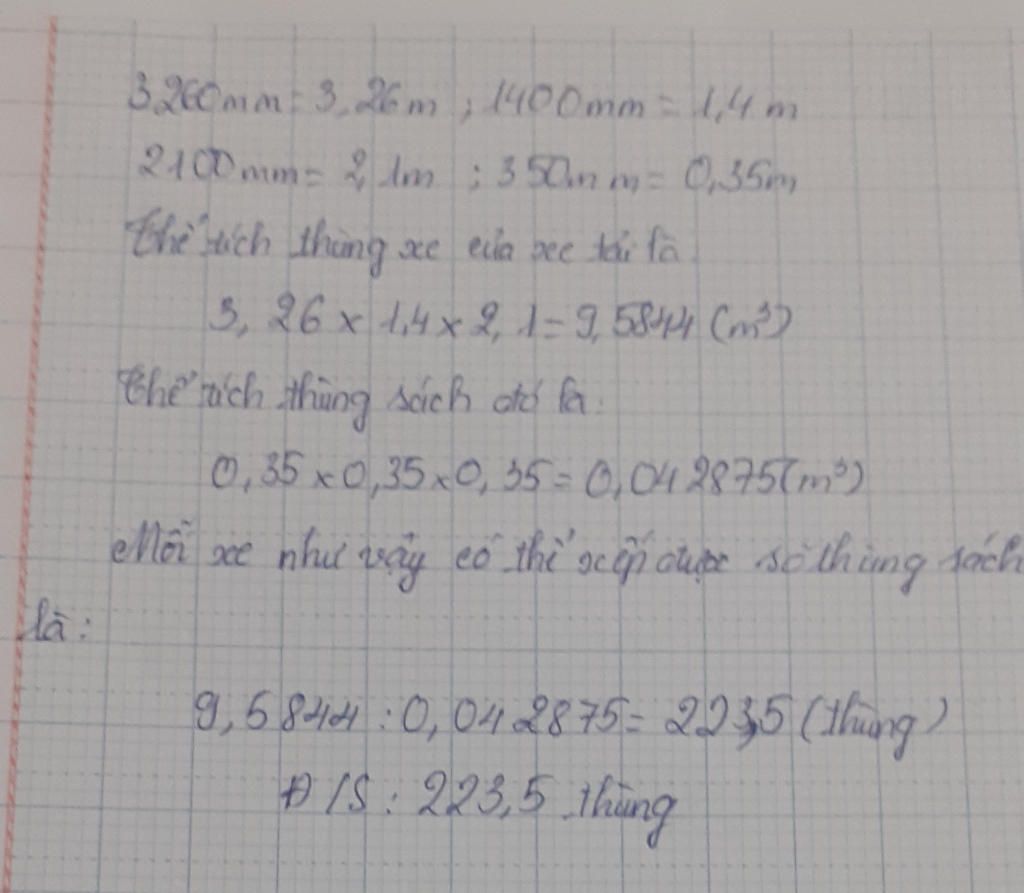 3260mm = 3,26m ; 1400mm = 1,4m
2100mm = 2,1m ; 350mm = 0,35m
Thể tích thùng xe của xe tải là
3,26 x 1,4 x 2,1 = 9,5844 (m³)
Thể tích thùng sách đó là:
0,35 x 0,35 x 0,35 = 0,042875 (m³)
Mỗi xe như vậy có thể xếp được số thùng sách
là:
9,5844 : 0,042875 = 223,5 (thùng)
Đ/S : 223,5 thùng